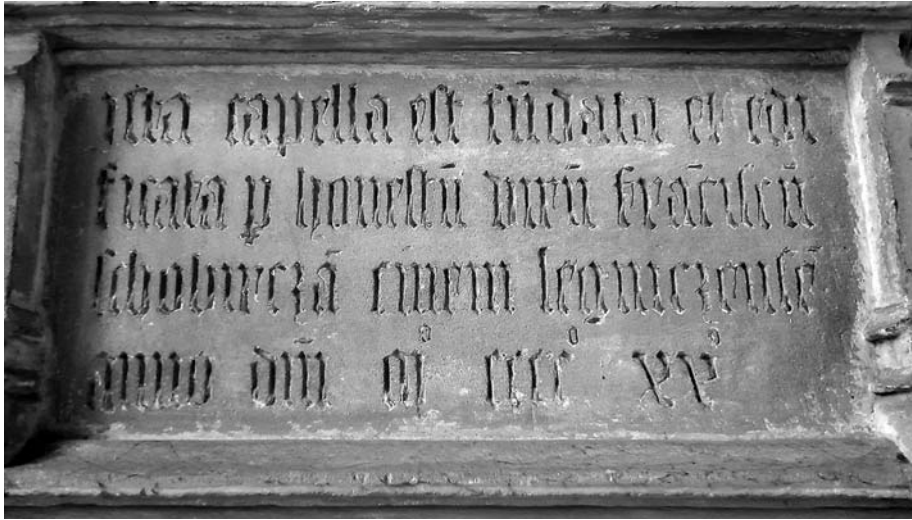 ista capella est fūdata et edi
ficata ꝑ honestū virū frāciscū
civem legniczensē
anno dm̄ mͦ ccccͦ xvͦ